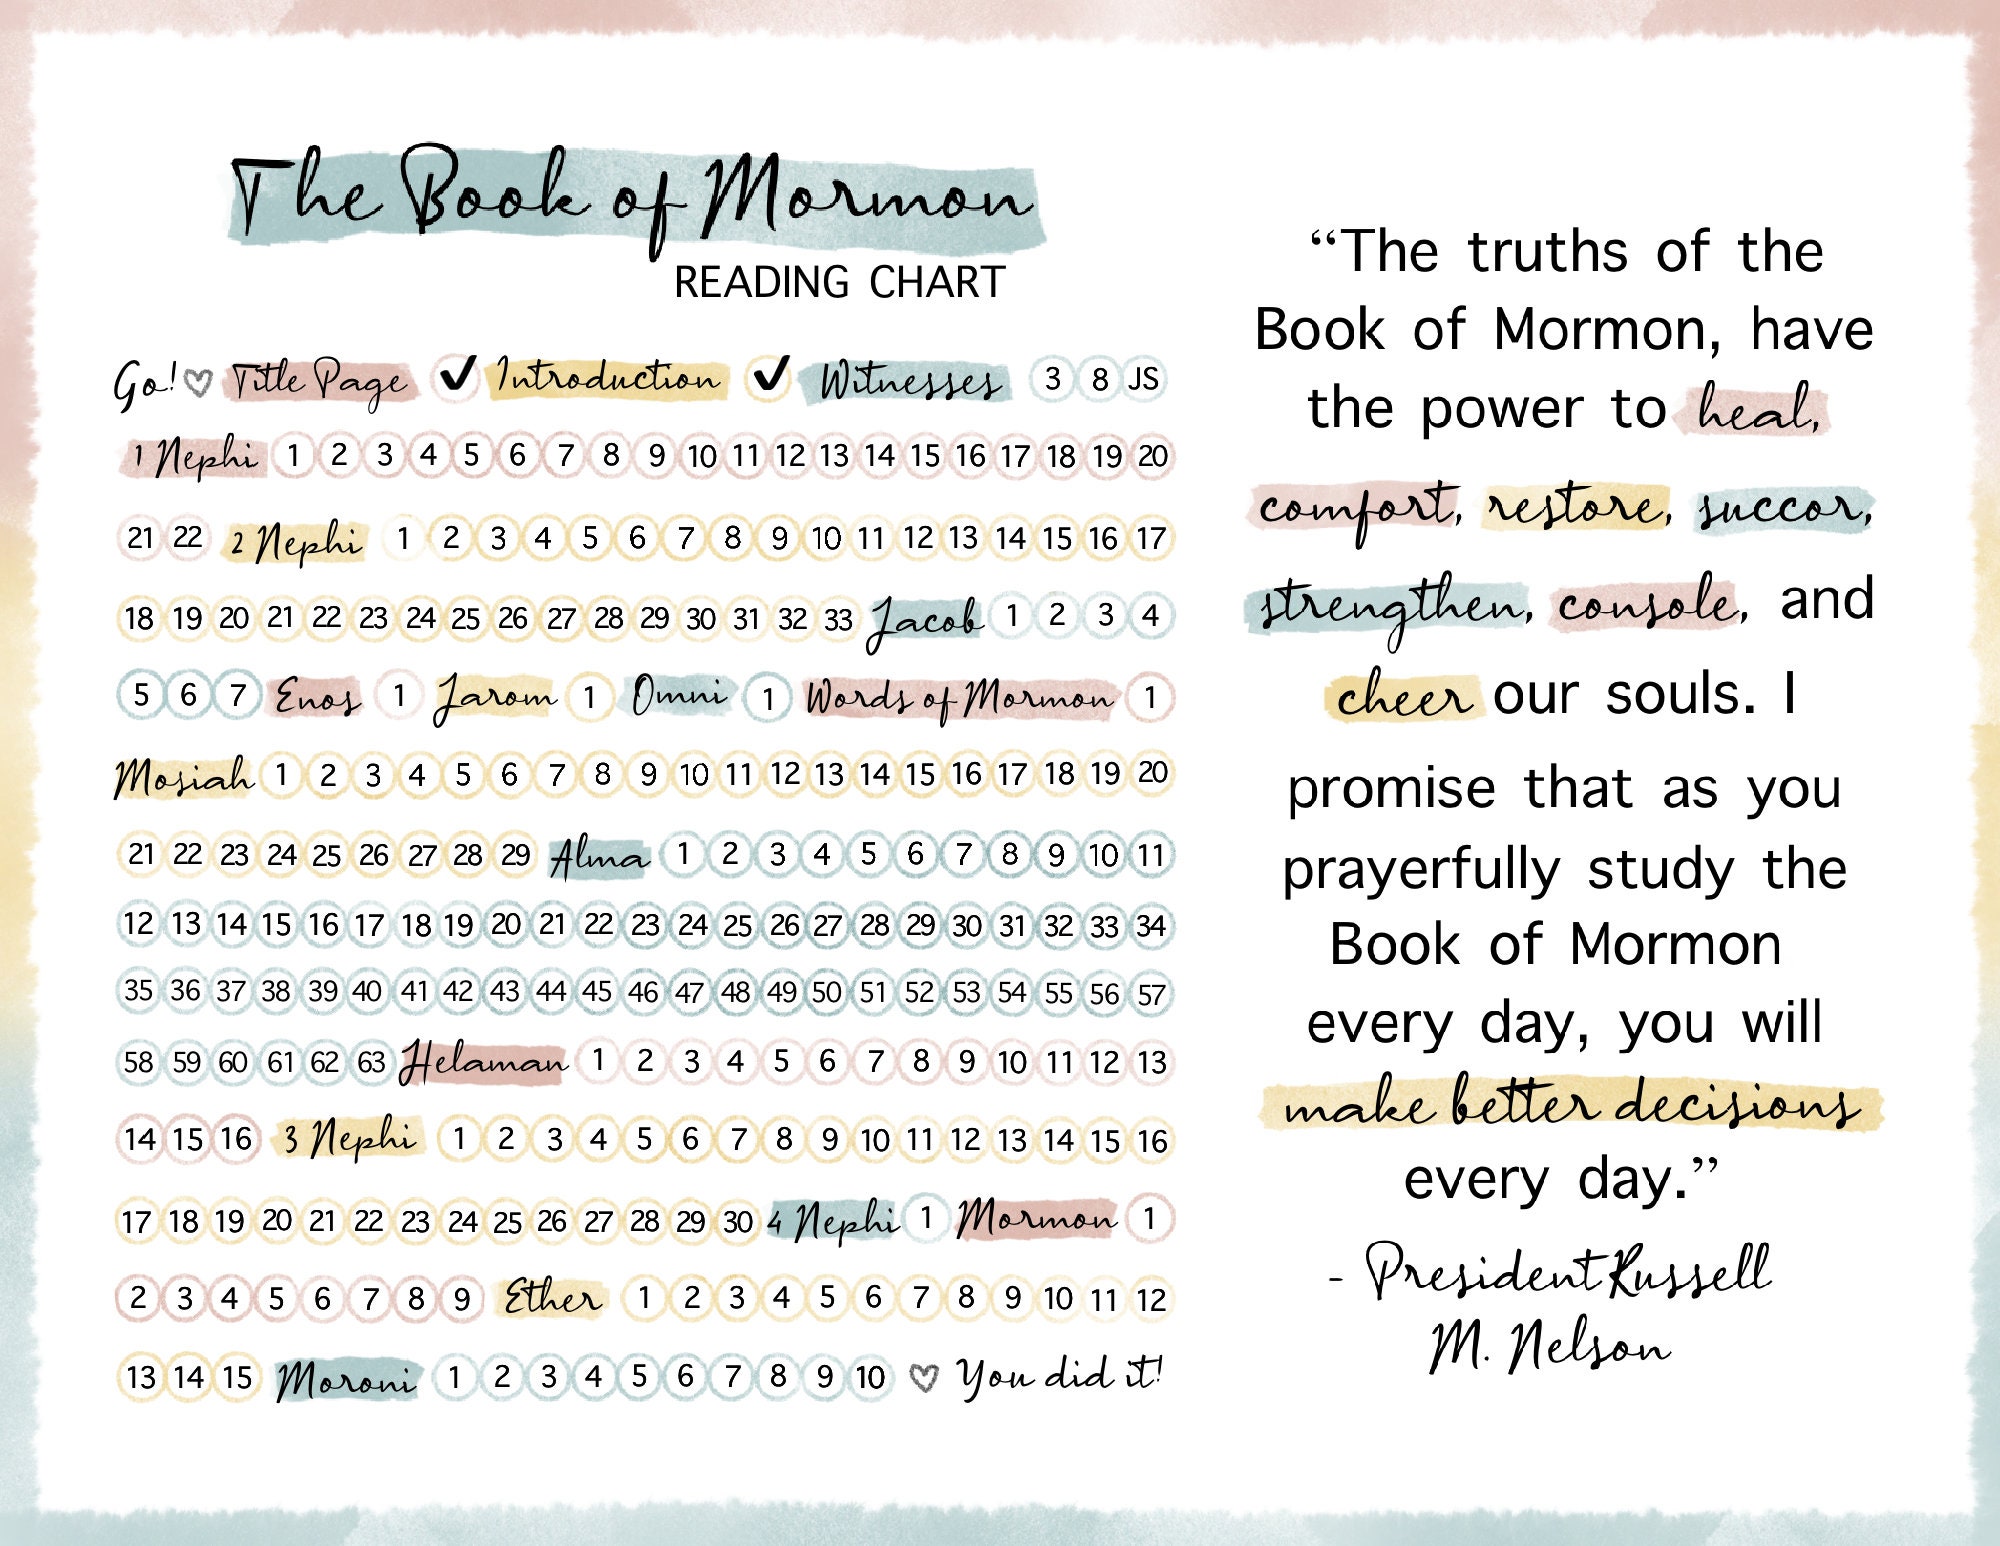 The Book of Mormon
READING CHART
Go! Title Page ✔ Introduction ✔ Witnesses 3 8 JS
1 Nephi 1 2 3 4 5 6 7 8 9 10 11 12 13 14 15 16 17 18 19 20
21 22 2 Nephi 1 2 3 4 5 6 7 8 9 10 11 12 13 14 15 16 17
18 19 20 21 22 23 24 25 26 27 28 29 30 31 32 33 Jacob 1 2 3 4
5 6 7 Enos 1 Jarom 1 Omni 1 Words of Mormon 1
Mosiah 1 2 3 4 5 6 7 8 9 10 11 12 13 14 15 16 17 18 19 20
21 22 23 24 25 26 27 28 29 Alma 1 2 3 4 5 6 7 8 9 10 11
12 13 14 15 16 17 18 19 20 21 22 23 24 25 26 27 28 29 30 31 32 33 34
35 36 37 38 39 40 41 42 43 44 45 46 47 48 49 50 51 52 53 54 55 56 57
58 59 60 61 62 63 Helaman 1 2 3 4 5 6 7 8 9 10 11 12 13
14 15 16 3 Nephi 1 2 3 4 5 6 7 8 9 10 11 12 13 14 15 16
17 18 19 20 21 22 23 24 25 26 27 28 29 30 4 Nephi 1 Mormon 1
2 3 4 5 6 7 8 9 Ether 1 2 3 4 5 6 7 8 9 10 11 12
13 14 15 Moroni 1 2 3 4 5 6 7 8 9 10 You did it!
“The truths of the
Book of Mormon, have
the power to heal,
comfort, restore, succor,
strengthen, console, and
cheer our souls. I
promise that as you
prayerfully study the
Book of Mormon
every day, you will
make better decisions
every day.”
- President Russell
M. Nelson